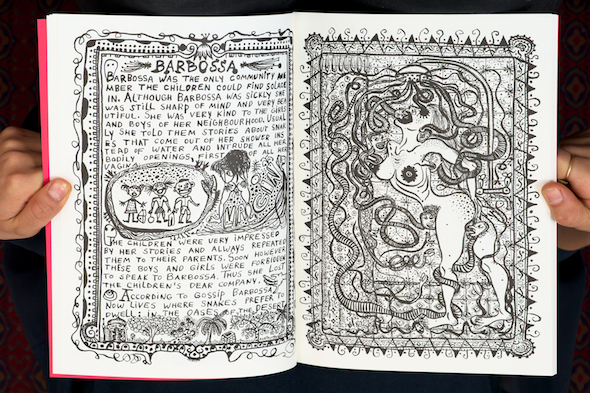 BARBOSSA
BARBOSSA WAS THE ONLY COMMUNITY ME
MBER THE CHILDREN COULD FIND SOLACE
IN. ALTHOUGH BARBOSSA WAS SICKLY SHE
WAS STILL SHARP OF MIND AND VERY BEA
UTIFUL. SHE WAS VERY KIND TO THE GIRLS
AND BOYS OF HER NEIGHBOURHOOD. USUAL
LY SHE TOLD THEM STORIES ABOUT SNAK
ES THAT COME OUT OF HER SHOWER INS
TEAD OF WATER AND INTRUDE ALL HER
BODILY OPENINGS, FIRST OF ALL HER
VAGINA.
THE CHILDREN WERE VERY IMPRESSED
BY HER STORIES AND ALWAYS REPEATED
THEM TO THEIR PARENTS. SOON HOWEVER
THESE BOYS AND GIRLS WERE FORBIDDEN
TO SPEAK TO BARBOSSA. THUS SHE LOST
THE CHILDREN'S DEAR COMPANY.
ACCORDING TO GOSSIP BARBOSSA
NOW LIVES WHERE SNAKES PREFER TO
DWELL: IN THE OASES OF THE DESERT